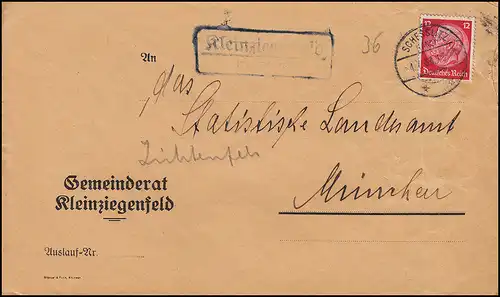 Kleinziegenfeld
36
12 12
Deutsches Reich
SCHESSLITZ
An
das
Statistische Landesamt
Lichtenfels
München
Gemeinderat
Kleinziegenfeld
Auslauf-Nr.